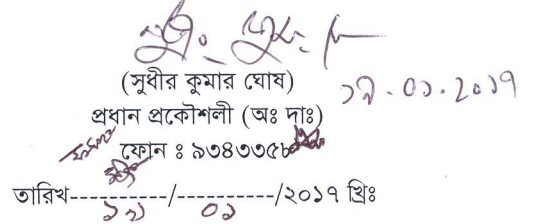 (সুধীর কুমার ঘোষ)
১৯.০১.২০১৭
প্রধান প্রকৌশলী (অঃ দাঃ)
ফোন ঃ ৯৩৪৩৩৫৮
তারিখ-----------/-----------/২০১৭ খ্রিঃ
১৯ ০১